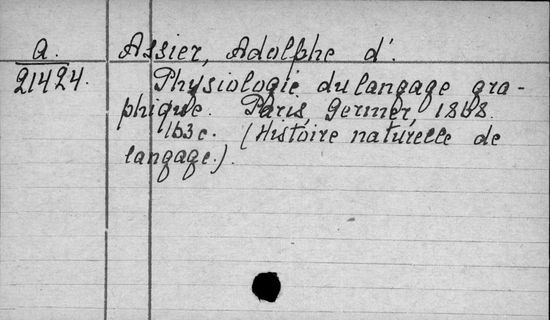 A.
21424.
Assier, Adolphe d'.
Physiologie du langage gra-
phique. Paris, Germer, 1868.
163 c. (Histoire naturelle de
langage.).